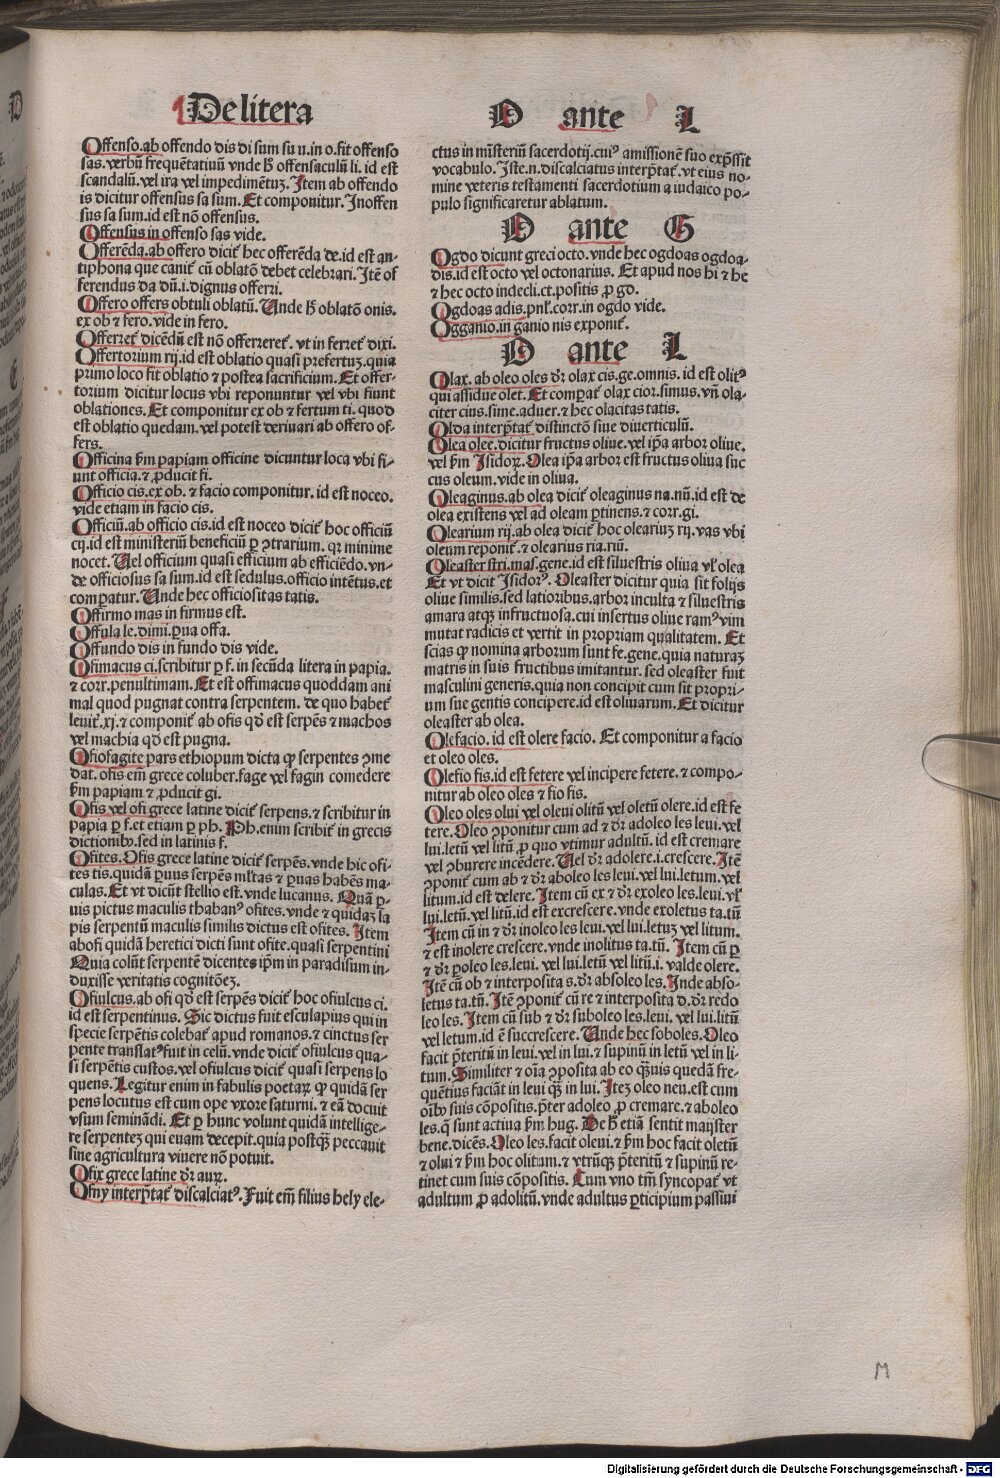 De litera
O ante L
Offenso.ab offendo dis di sum su u.in o.fit offenso
sas.verbū frequētatiuū vnde hͦ offensaculū li.id est
scandalū.vel ira vel impedimētuꝫ.Item ab offendo
is dicitur offensus sa sum.Et componitur.Inoffen
sus sa sum.id est nō offensus.
Offensus in offenso sas vide.
Offerēda.ab offero dicit᷑ hec offerēda de.id est an-
tiphona que canit᷑ cū oblatō debet celebrari.Itē of
ferendus da dū.i.dignus offerri.
Offero offers obtuli oblatū.Unde hͦ oblatō onis.
ex ob ⁊ fero.vide in fero.
Offerret᷑ dicēdū est nō offerreret᷑.vt in ferret᷑ dixi.
Offertorium rij.id est oblatio quasi prefertuꝫ.quia
primo loco fit oblatio ⁊ postea sacrificium.Et offer-
torium dicitur locus vbi reponuntur vel vbi fiunt
oblationes.Et componitur ex ob ⁊ fertum ti.quod
est oblatio quedam.vel potest deriuari ab offero of-
fers.
Officina ẜm papiam officine dicuntur loca vbi fi-
unt officia.⁊ ꝓducit fi.
Officio cis.ex ob.⁊ facio componitur.id est noceo.
vide etiam in facio cis.
Officiū.ab officio cis.id est noceo dicit᷑ hoc officiū
cij.id est ministeriū beneficiū ꝑ ꝯtrarium.qꝛ minime
nocet.Uel officium quasi efficium ab efficiēdo.vn-
de officiosus sa sum.id est sedulus.officio intētus.et
comꝑatur.Unde hec officiositas tatis.
Offirmo mas in firmus est.
Offula le.dimi.ꝑua offa.
Offundo dis in fundo dis vide.
Ofimacus ci.scribitur ꝑ f.in secūda litera in papia.
⁊ corr.penultimam.Et est offimacus quoddam ani
mal quod pugnat contra serpentem.de quo habet᷑
leuit᷑.xj.⁊ componit᷑ ab ofis qd̓ est serpēs ⁊ machos
vel machia qd̓ est pugna.
Ofiofagite pars ethiopum dicta ꝙ serpentes ꝯme
dat.ofis em̄ grece coluber.fage vel fagin comedere
ẜm papiam ⁊ ꝓducit gi.
Ofis vel ofi grece latine dicit᷑ serpens.⁊ scribitur in
papia ꝑ f.et etiam ꝑ ph.Ph.enim scribit᷑ in grecis
dictionibꝰ.sed in latinis f.
Ofites.Ofis grece latine dicit᷑ serpēs.vnde hic ofi-
tes tis.quidā ꝑuus serpēs ml̓tas ⁊ ꝑuas habēs ma-
culas.Et vt dicūt stellio est.vnde lucanus.Quā ꝑ-
uis pictus maculis thabanꝰ ofites.vnde ⁊ quidaꝫ la
pis serpentū maculis similis dictus est ofites.Item
abofi quidā heretici dicti sunt ofite.quasi serpentini
Quia colūt serpentē dicentes ip̄m in paradisum in-
duxisse veritatis cognitōeꝫ.
Ofiulcus.ab ofi qd̓ est serpēs dicit᷑ hoc ofiulcus ci.
id est serpentinus.Sic dictus fuit esculapius qui in
specie serpētis colebat᷑ apud romanos.⁊ cinctus ser
pente translatꝰ fuit in celū.vnde dicit᷑ ofiulcus qua-
si serpētis custos.vel ofiulcus dicit᷑ quasi serpens lo
quens.Legitur enim in fabulis poetaꝝ ꝙ quidā ser
pens locutus est cum ope vxore saturni.⁊ eā docuit
vsum seminādi.Et ꝑ hunc volunt quidā intellige-
re serpenteꝫ qui euam decepit.quia postꝗ̄ peccauit
sine agricultura viuere nō potuit.
Ofix grece latine dr̄ auꝝ.
Ofny interp̄tat᷑ discalciatꝰ.Fuit em̄ filius hely ele-
ctus in mīsteriū sacerdotij.cuiꝰ amissionē suo exp̄ssit
vocabulo.Iste.n.discalciatus interp̄tat᷑.vt eius no-
mine veteris testamenti sacerdotium a iudaico po-
pulo significaretur ablatum.
O ante G
Ogdo dicunt greci octo.vnde hec ogdoas ogdoa-
dis.id est octo vel octonarius.Et apud nos hi ⁊ he
⁊ hec octo indecli.ct.positis ꝓ gd.
Ogdoas adis.pnl̓.corr.in ogdo vide.
Ogganio.in ganio nis exponit᷑.
O ante L
Olax.ab oleo oles dr̄ olax cis.ge.omnis.id est olitꝰ
qui assidue olet.Et comꝑat᷑ olax cior.simus.vn̄ ola-
citer cius.sime.aduer.⁊ hec olacitas tatis.
Olda interp̄tat᷑ distinctō siue diuerticulū.
Olea olee.dicitur fructus oliue.vel ip̄a arbor oliue.
vel ẜm Isidoꝝ.Olea ip̄a arbor est fructus oliua suc
cus oleum.vide in oliua.
Oleaginus.ab olea dicit᷑ oleaginus na.nū.id est de
olea existens vel ad oleam ꝑtinens.⁊ corr.gi.
Olearium rij.ab olea dicit᷑ hoc oleariuꝫ rij.vas vbi
oleum reponit᷑.⁊ olearius ria.riū.
Oleaster stri.mas.gene.id est siluestris oliua vl̓ olea
Et vt dicit Isidorꝰ.Oleaster dicitur quia sit folijs
oliue similis.sed latioribus.arbor inculta ⁊ siluestris
amara atqꝫ infructuosa.cui insertus oliue ramꝰ vim
mutat radicis et vertit in propriam qualitatem.Et
scias ꝙ nomina arborum sunt fe.gene.quia naturaꝫ
matris in suis fructibus imitantur.sed oleaster fuit
masculini generis.quia non concipit cum sit propri-
um sue gentis concipere.id est oliuarum.Et dicitur
oleaster ab olea.
Olefacio.id est olere facio.Et componitur a facio
et oleo oles.
Olefio fis.id est fetere vel incipere fetere.⁊ compo-
nitur ab oleo oles ⁊ fio fis.
Oleo oles olui vel oleui olitū vel oletū olere.id est fe
tere.Oleo ꝯponitur cum ad ⁊ dr̄ adoleo les leui.vel
lui.letū vel litū ꝓ quo vtimur adultū.id est cremare
vel ꝯburere incēdere.Uel dr̄ adolere.i.crescere.Itē
ꝯponit᷑ cum ab ⁊ dr̄ aboleo les leui.vel lui.letum.vel
litum.id est delere.Item cū ex ⁊ dr̄ exoleo les.leui.vl̓
lui.letū.vel litū.id est excrescere.vnde exoletus ta.tū
Item cū in ⁊ dr̄ inoleo les leui.vel lui.letuꝫ vel litum.
⁊ est inolere crescere.vnde inolitus ta.tū.Item cū ꝑ
⁊ dr̄ ꝑoleo les.leui.vel lui.letū vel litū.i.valde olere.
Itē cū ob ⁊ interposita s.dr̄ absoleo les.Inde abso-
letus ta.tū.Itē ꝯponit᷑ cū re ⁊ interposita d.dr̄ redo
leo les.Item cū sub ⁊ dr̄ suboleo les.leui.vel lui.litū
vel letum.id ē succrescere.Unde hec soboles.Oleo
facit p̄teritū in leui.vel in lui.⁊ supinū in letū vel in li-
tum.Similiter ⁊ oīa ꝯposita ab eo qͣuis quedā fre-
quētius faciāt in leui qͣꝫ in lui.Iteꝫ oleo neu.est cum
oībꝰ suis cōpositis.p̄ter adoleo ꝓ cremare.⁊ aboleo
les.q̄ sunt actiua ẜm hug.De hͦ etiā sentit magister
bene.dicēs.Oleo les.facit oleui.⁊ ẜm hoc facit oletū
⁊ olui ⁊ ẜm hoc olitum.⁊ vtrūqꝫ p̄teritū ⁊ supinū re-
tinet cum suis cōpositis.Cum vno tm̄ syncopat᷑ vt
adultum ꝓ adolitū.vnde adultus ꝑticipium passiui
M
Digitalisierung gefördert durch die Deutsche Forschungsgemeinschaft - DFG